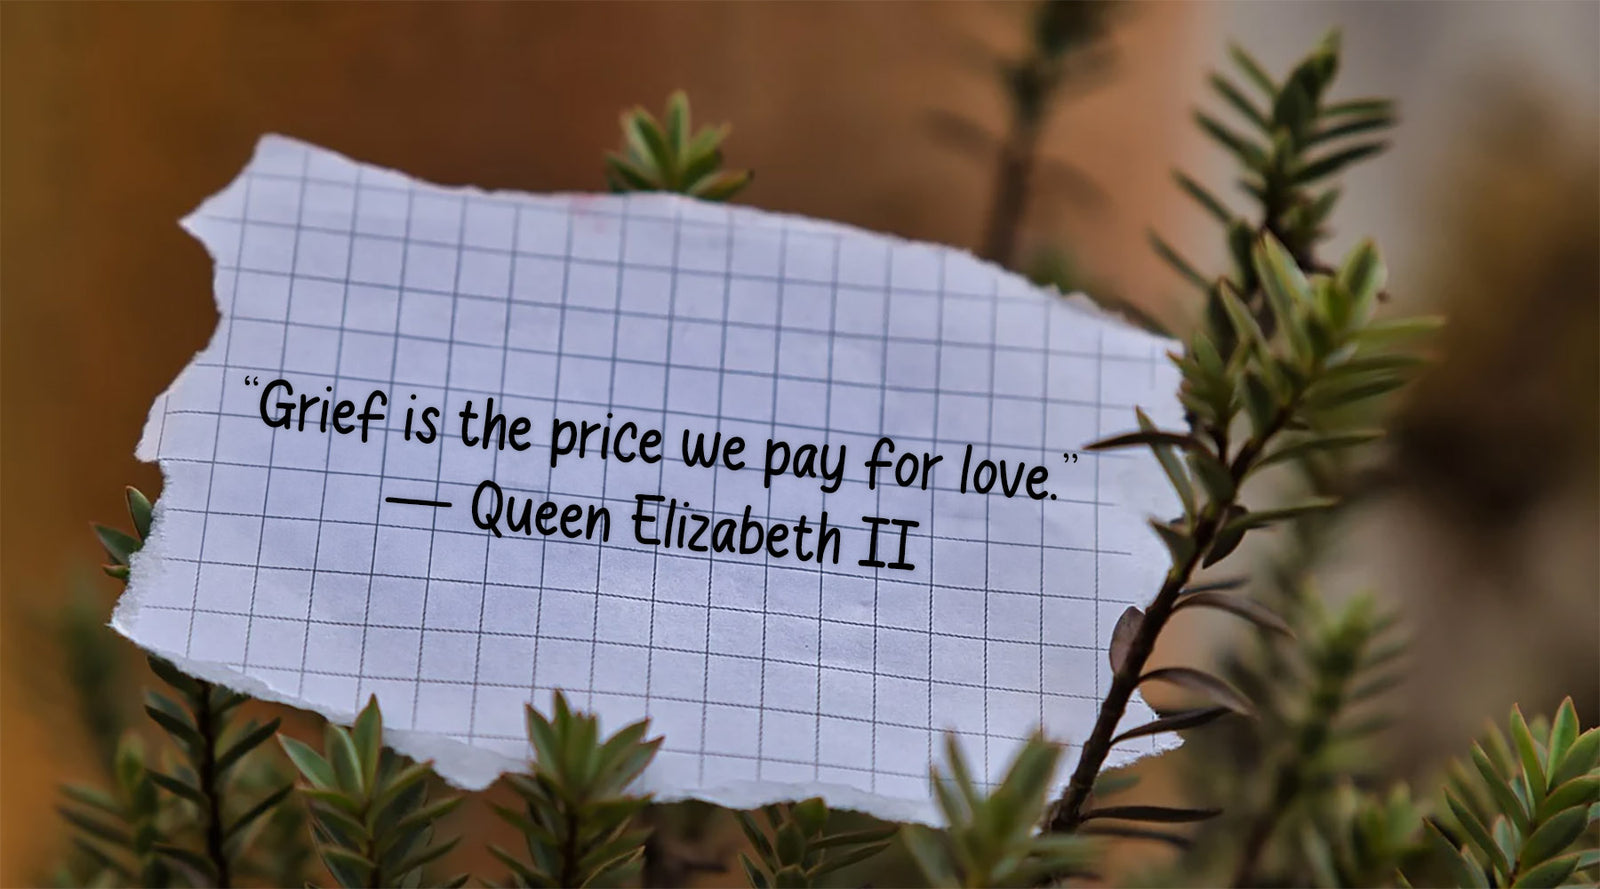 “Grief is the price we pay for love.”
— Queen Elizabeth II